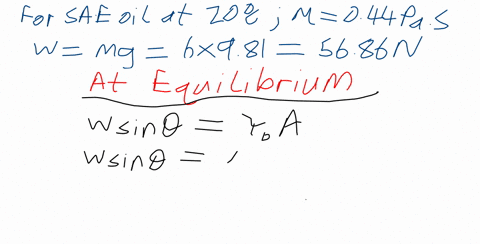 For SAE oil at 20°c ; M = 0.44 Pa.s
W = mg = 6 x 9.81 = 56.86 N
At EquilibriuM
wsinθ = τ₀ A
wsinθ =